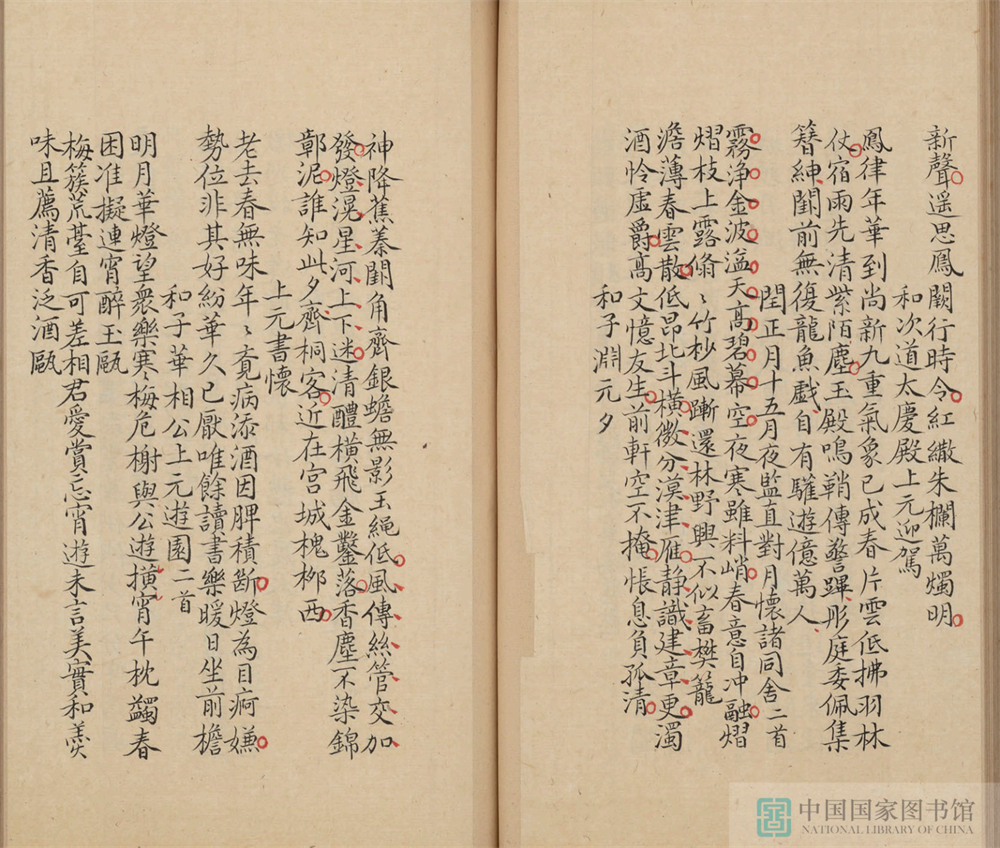 新聲遥思鳳闕行時令紅繖朱欄萬燭明
和次道太慶殿上元迎駕
鳳律年華到尚新九重氣象已成春片雲低拂羽林
仗宿雨先清紫陌塵玉殿鳴鞘傳警蹕彤庭委佩集
簪紳闓前無復龍魚戲自有驩遊億萬人
閏正月十五月夜監直對月懷諸同舍二首
霧浄金波溢天髙碧幕空夜寒雖料峭春意自冲融熠
熠枝上露翛〻竹杪風蹔還林野興不似畜樊籠
澹薄春雲散低昂北斗橫微分漠津雁静識建章更濁
酒怜虚爵髙文憶友生前軒空不掩悵息負孤清
和子淵元夕
神降蕉蓁闓角齊銀蟾無影玉繩低風傳絲管交加
發燈滉星河上下迷清醴橫飛金鑿落香塵不染錦
鄣泥誰知此夕齊桐客近在宫城槐栁西
上元書懷
老去春無味年〻覔病添酒因脾積斷燈為目痾嫌
勢位非其好紛華久已厭唯餘讀書樂暖日坐前檐
和子華相公上元遊園二首
明月華燈望衆樂寒〻梅危榭與公遊搷宵午枕蠲春
困准擬連宵醉玉甌
梅簇荒臺自可差相君愛賞忘宵遊未言美實和羮
味且薦清香泛酒甌
中国国家图书馆
NATIONAL LIBRARY OF CHINA